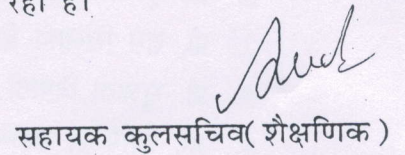 रहा है।
सहायक कुलसचिव( शैक्षणिक )